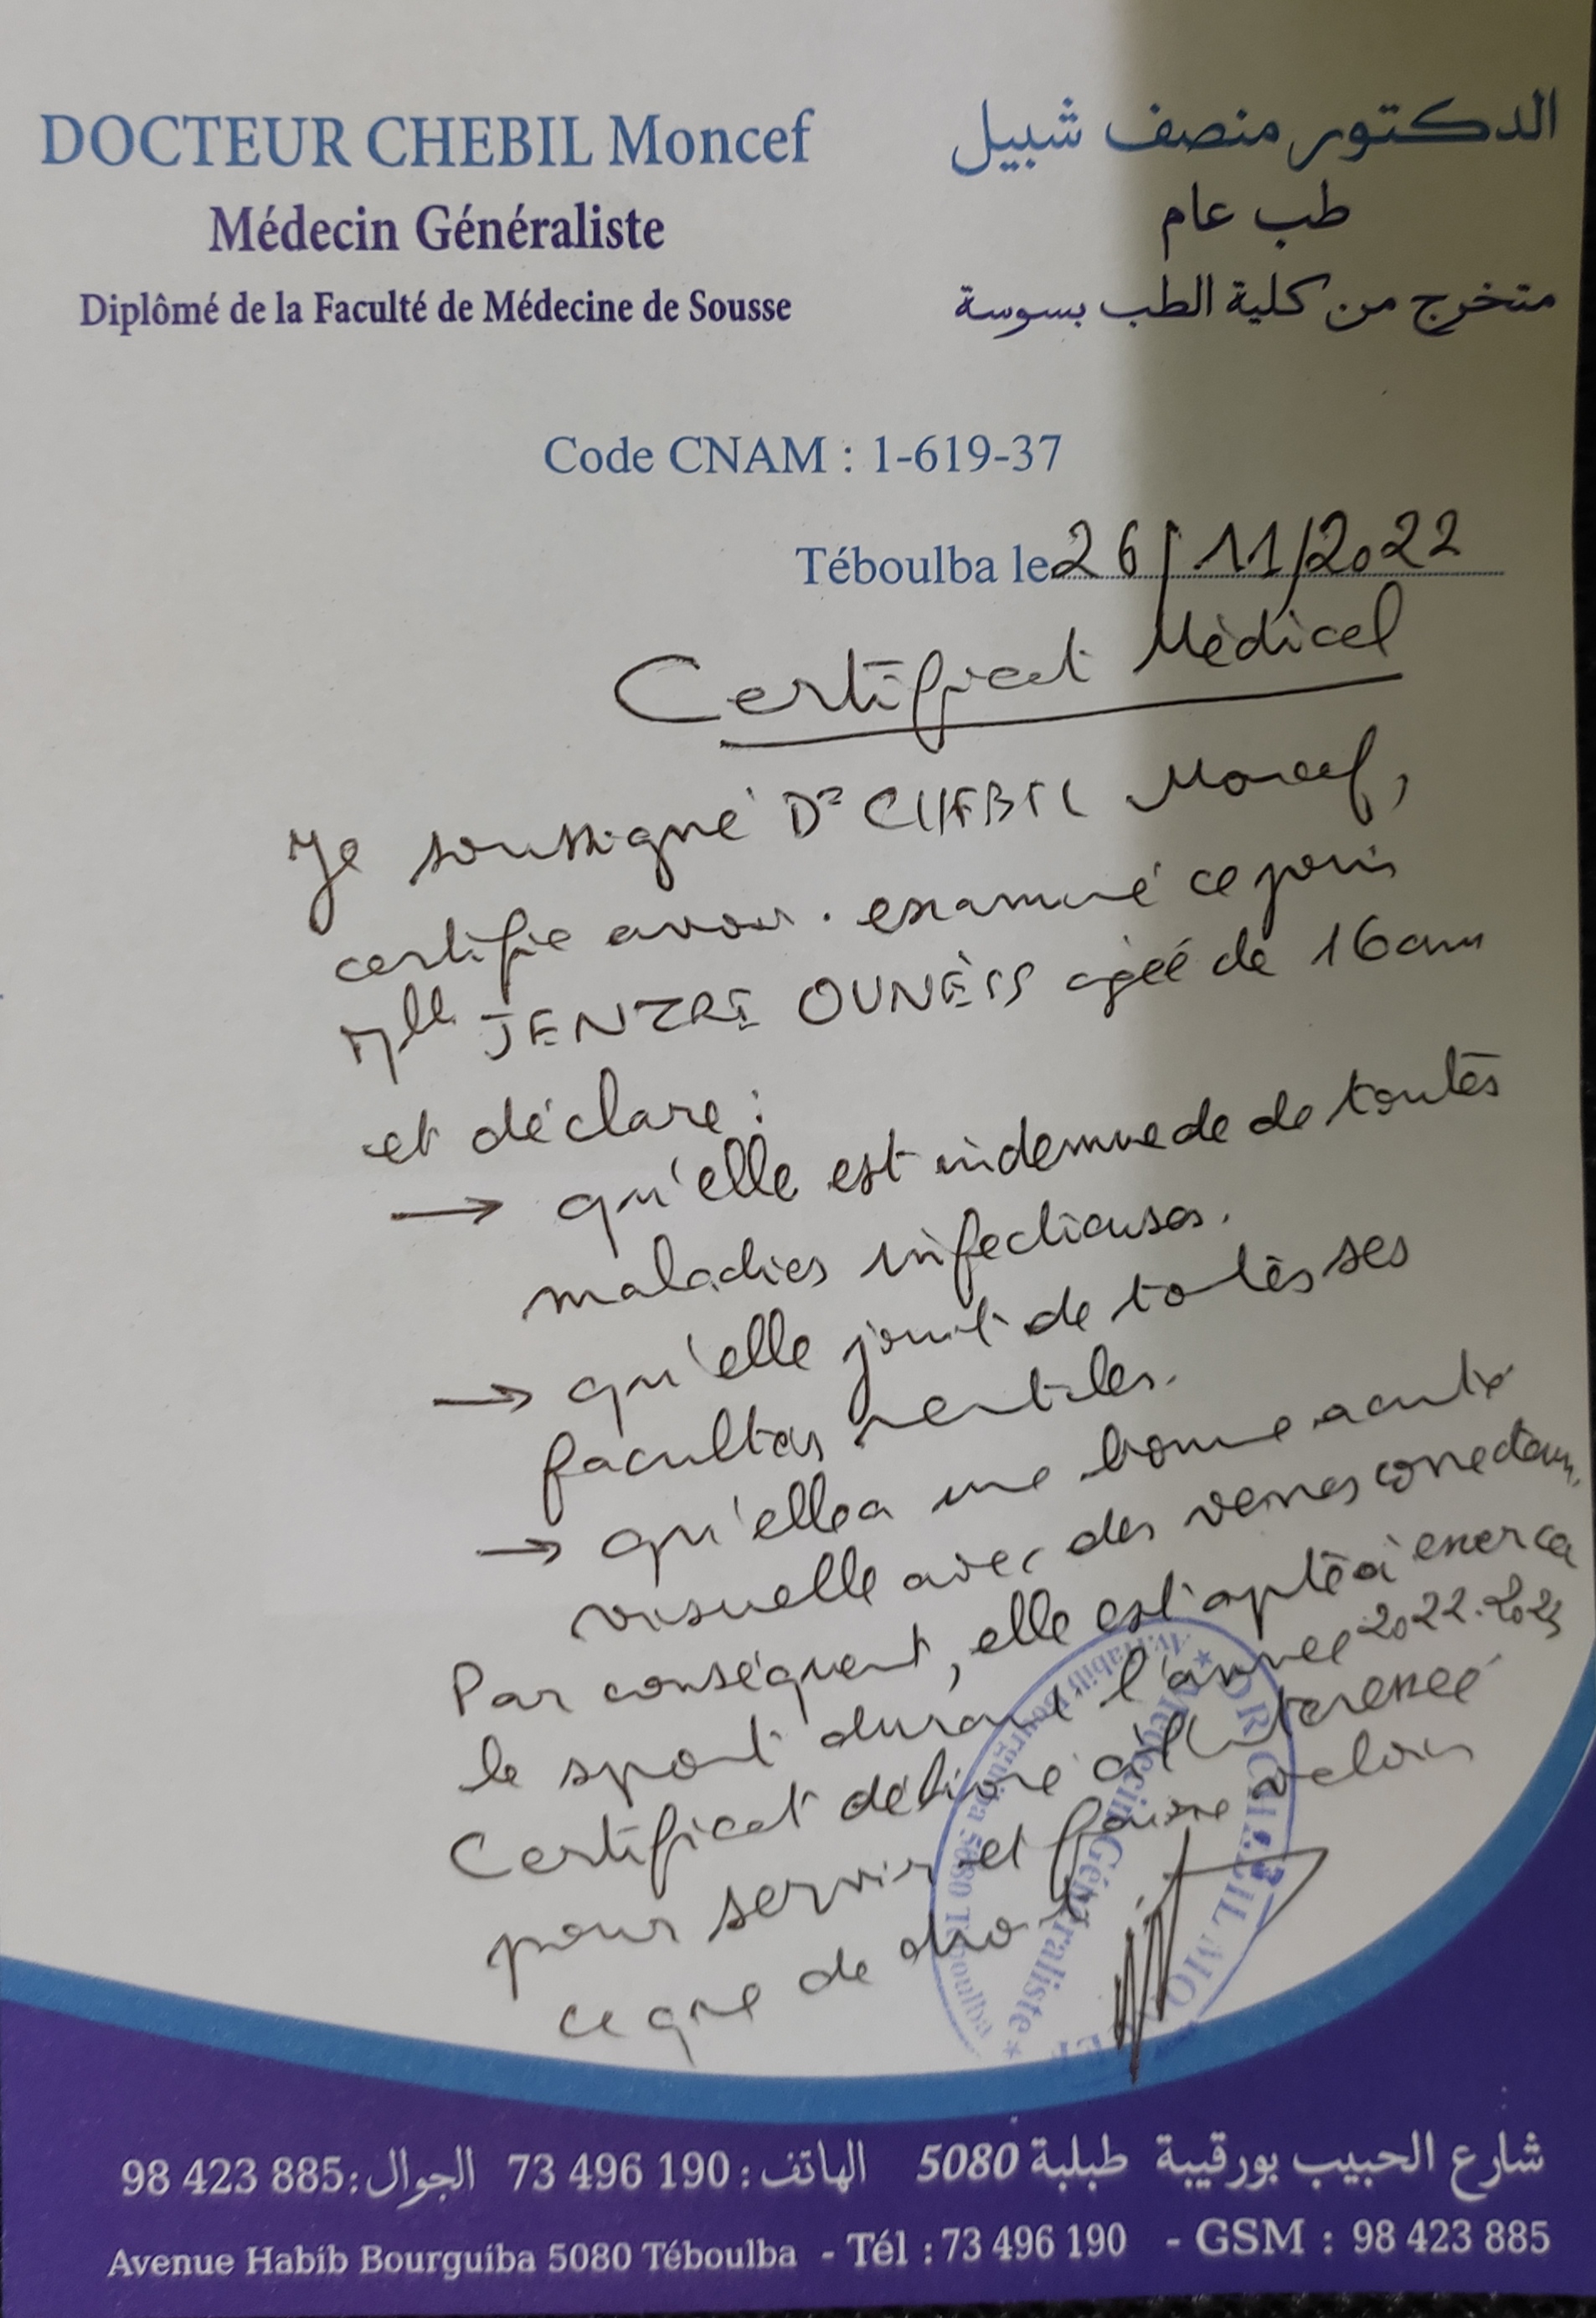 DOCTEUR CHEBIL Moncef
الدكتور منصف شبيل
Médecin Généraliste
طب عام
Diplômé de la Faculté de Médecine de Sousse
متخرج من كلية الطب بسوسة
Code CNAM : 1-619-37
Téboulba le 26/11/2022
Certificat Médical
Je soussigné Dr CHEBIL Moncef,
certifie avoir examiné ce jour
Mlle JENZRI OUNEISS agéé de 16 ans
et déclare :
→ qu'elle est indemne de de toutes
maladies infectieuses.
→ qu'elle jouit de toutes ses
facultés mentales.
→ qu'elle a une bonne acuité
visuelle avec des verres correcteurs.
Par conséquent, elle est apte à exercer
le sport durant l'année 2022-2023
Certificat délivré à l'intéressée
pour servir et faire valoir
ce que de droit
DR CHEBIL MONCEF
* Médecin Généraliste *
Av. Habib Bourguiba 5080 Téboulba
شارع الحبيب بورقيبة طبلبة 5080 الهاتف : 73 496 190 الجوال : 98 423 885
Avenue Habib Bourguiba 5080 Téboulba - Tél : 73 496 190 - GSM : 98 423 885